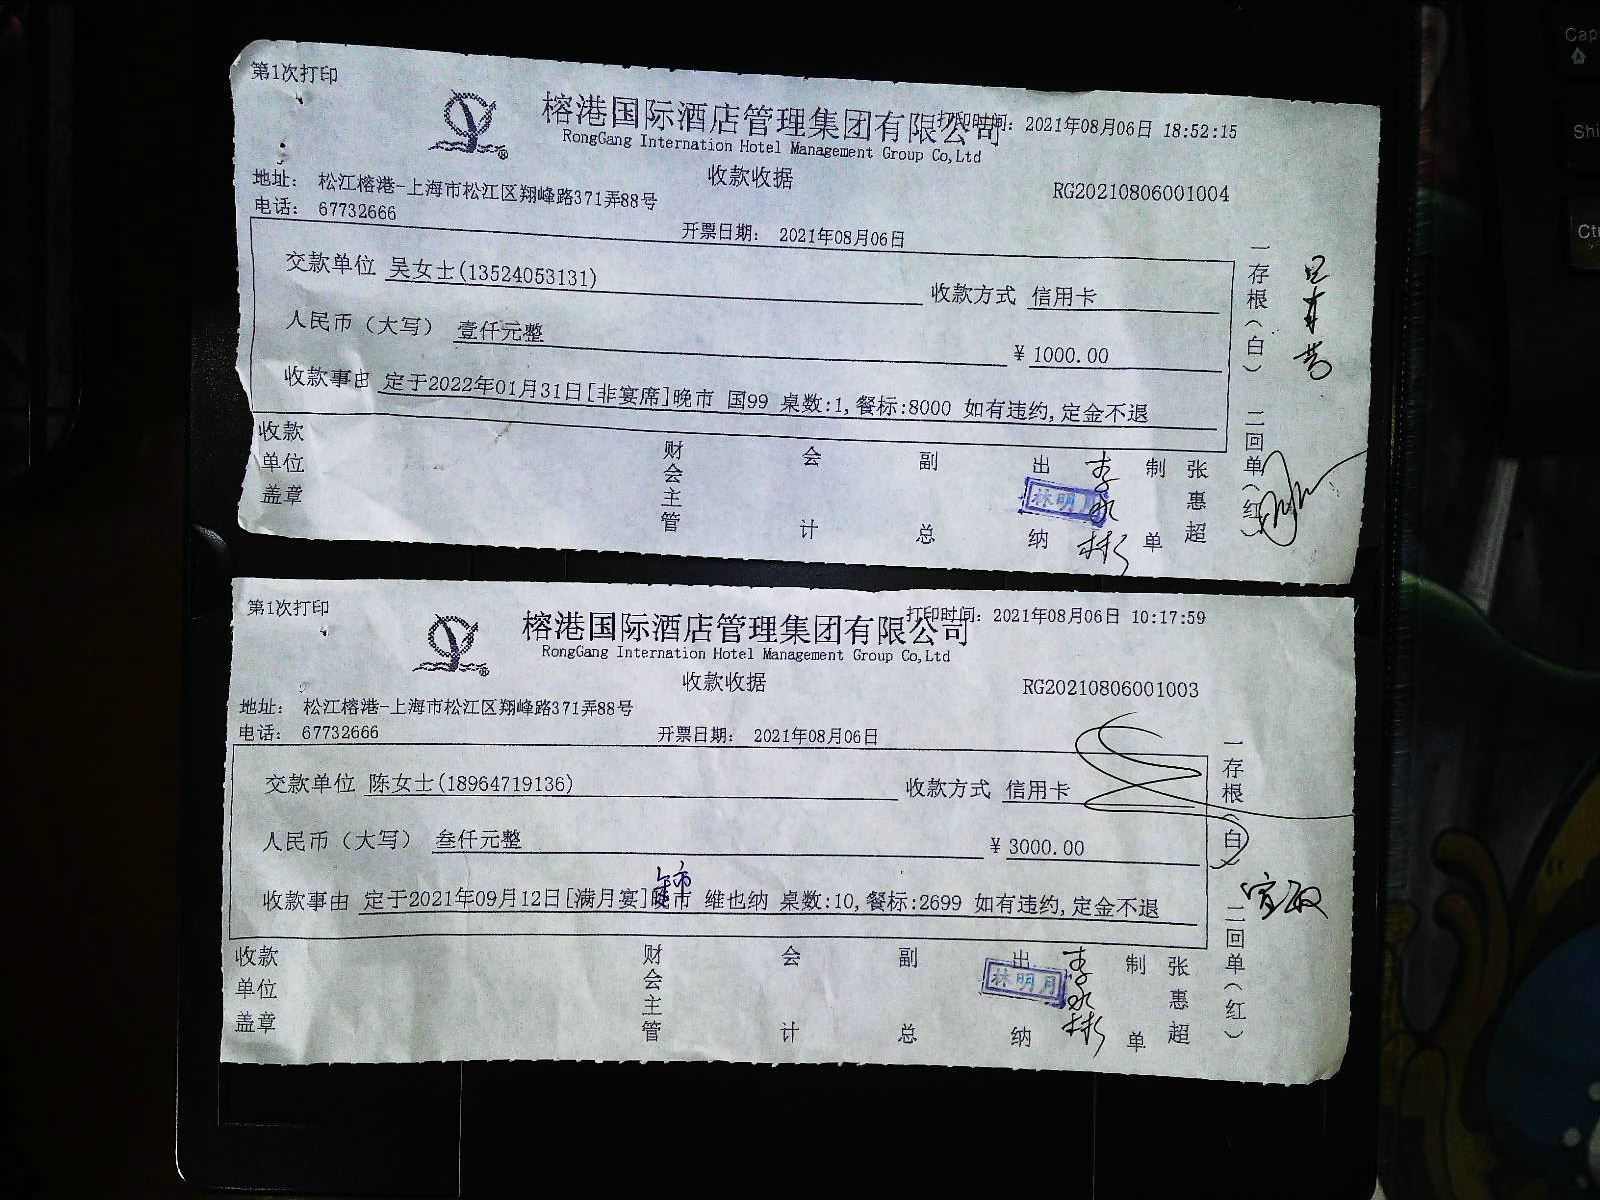 第1次打印
榕港国际酒店管理集团有限公司
打印时间: 2021年08月06日 18:52:15
RongGang Internation Hotel Management Group Co,Ltd
收款收据
RG20210806001004
地址: 松江榕港-上海市松江区翔峰路371弄88号
电话: 67732666
开票日期: 2021年08月06日
交款单位 吴女士(13524053131) 收款方式 信用卡
人民币（大写） 壹仟元整 ¥ 1000.00
收款事由 定于2022年01月31日[非宴席]晚市 国99 桌数:1,餐标:8000 如有违约,定金不退
收款单位盖章 财会主管 会计 副总 出纳 李水彬 制单 张惠超
林明月
一存根（白） 二回单（红）
第1次打印
榕港国际酒店管理集团有限公司
打印时间: 2021年08月06日 10:17:59
RongGang Internation Hotel Management Group Co,Ltd
收款收据
RG20210806001003
地址: 松江榕港-上海市松江区翔峰路371弄88号
电话: 67732666
开票日期: 2021年08月06日
交款单位 陈女士(18964719136) 收款方式 信用卡
人民币（大写） 叁仟元整 ¥ 3000.00
收款事由 定于2021年09月12日[满月宴]晚市 维也纳 桌数:10,餐标:2699 如有违约,定金不退
收款单位盖章 财会主管 会计 副总 出纳 李水彬 制单 张惠超
林明月
一存根（白） 二回单（红）
Cap
Shi
Ct